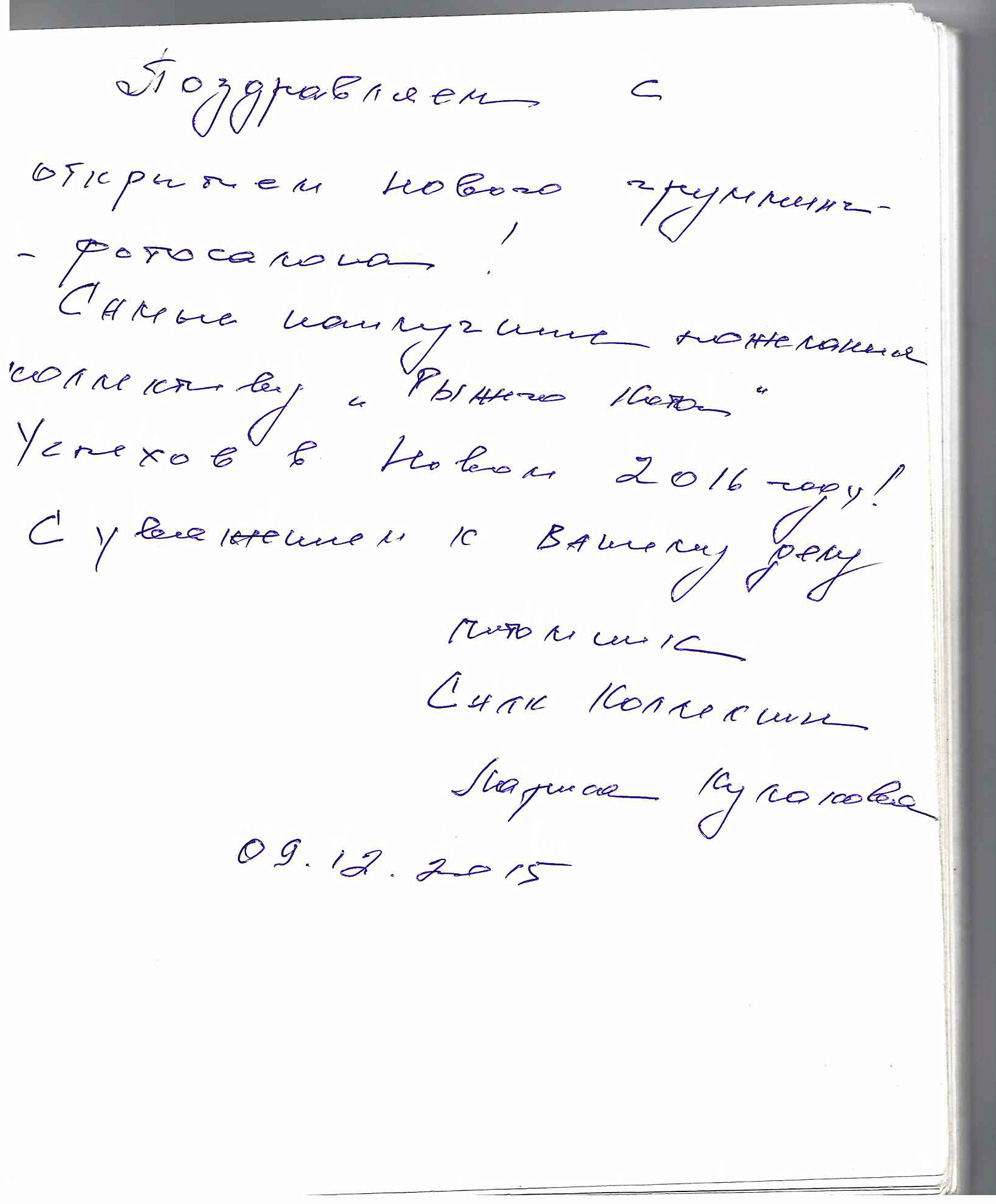 Поздравляем с
открытием нового грумминг-
- фотосалона!
Самые наилучшие пожелания
коллективу „Рыжего Кота"
Успехов в Новом 2016 году!
С уважением к Вашему делу
питомник
Силк Коллекшн
Марина Кулакова
09.12.2015